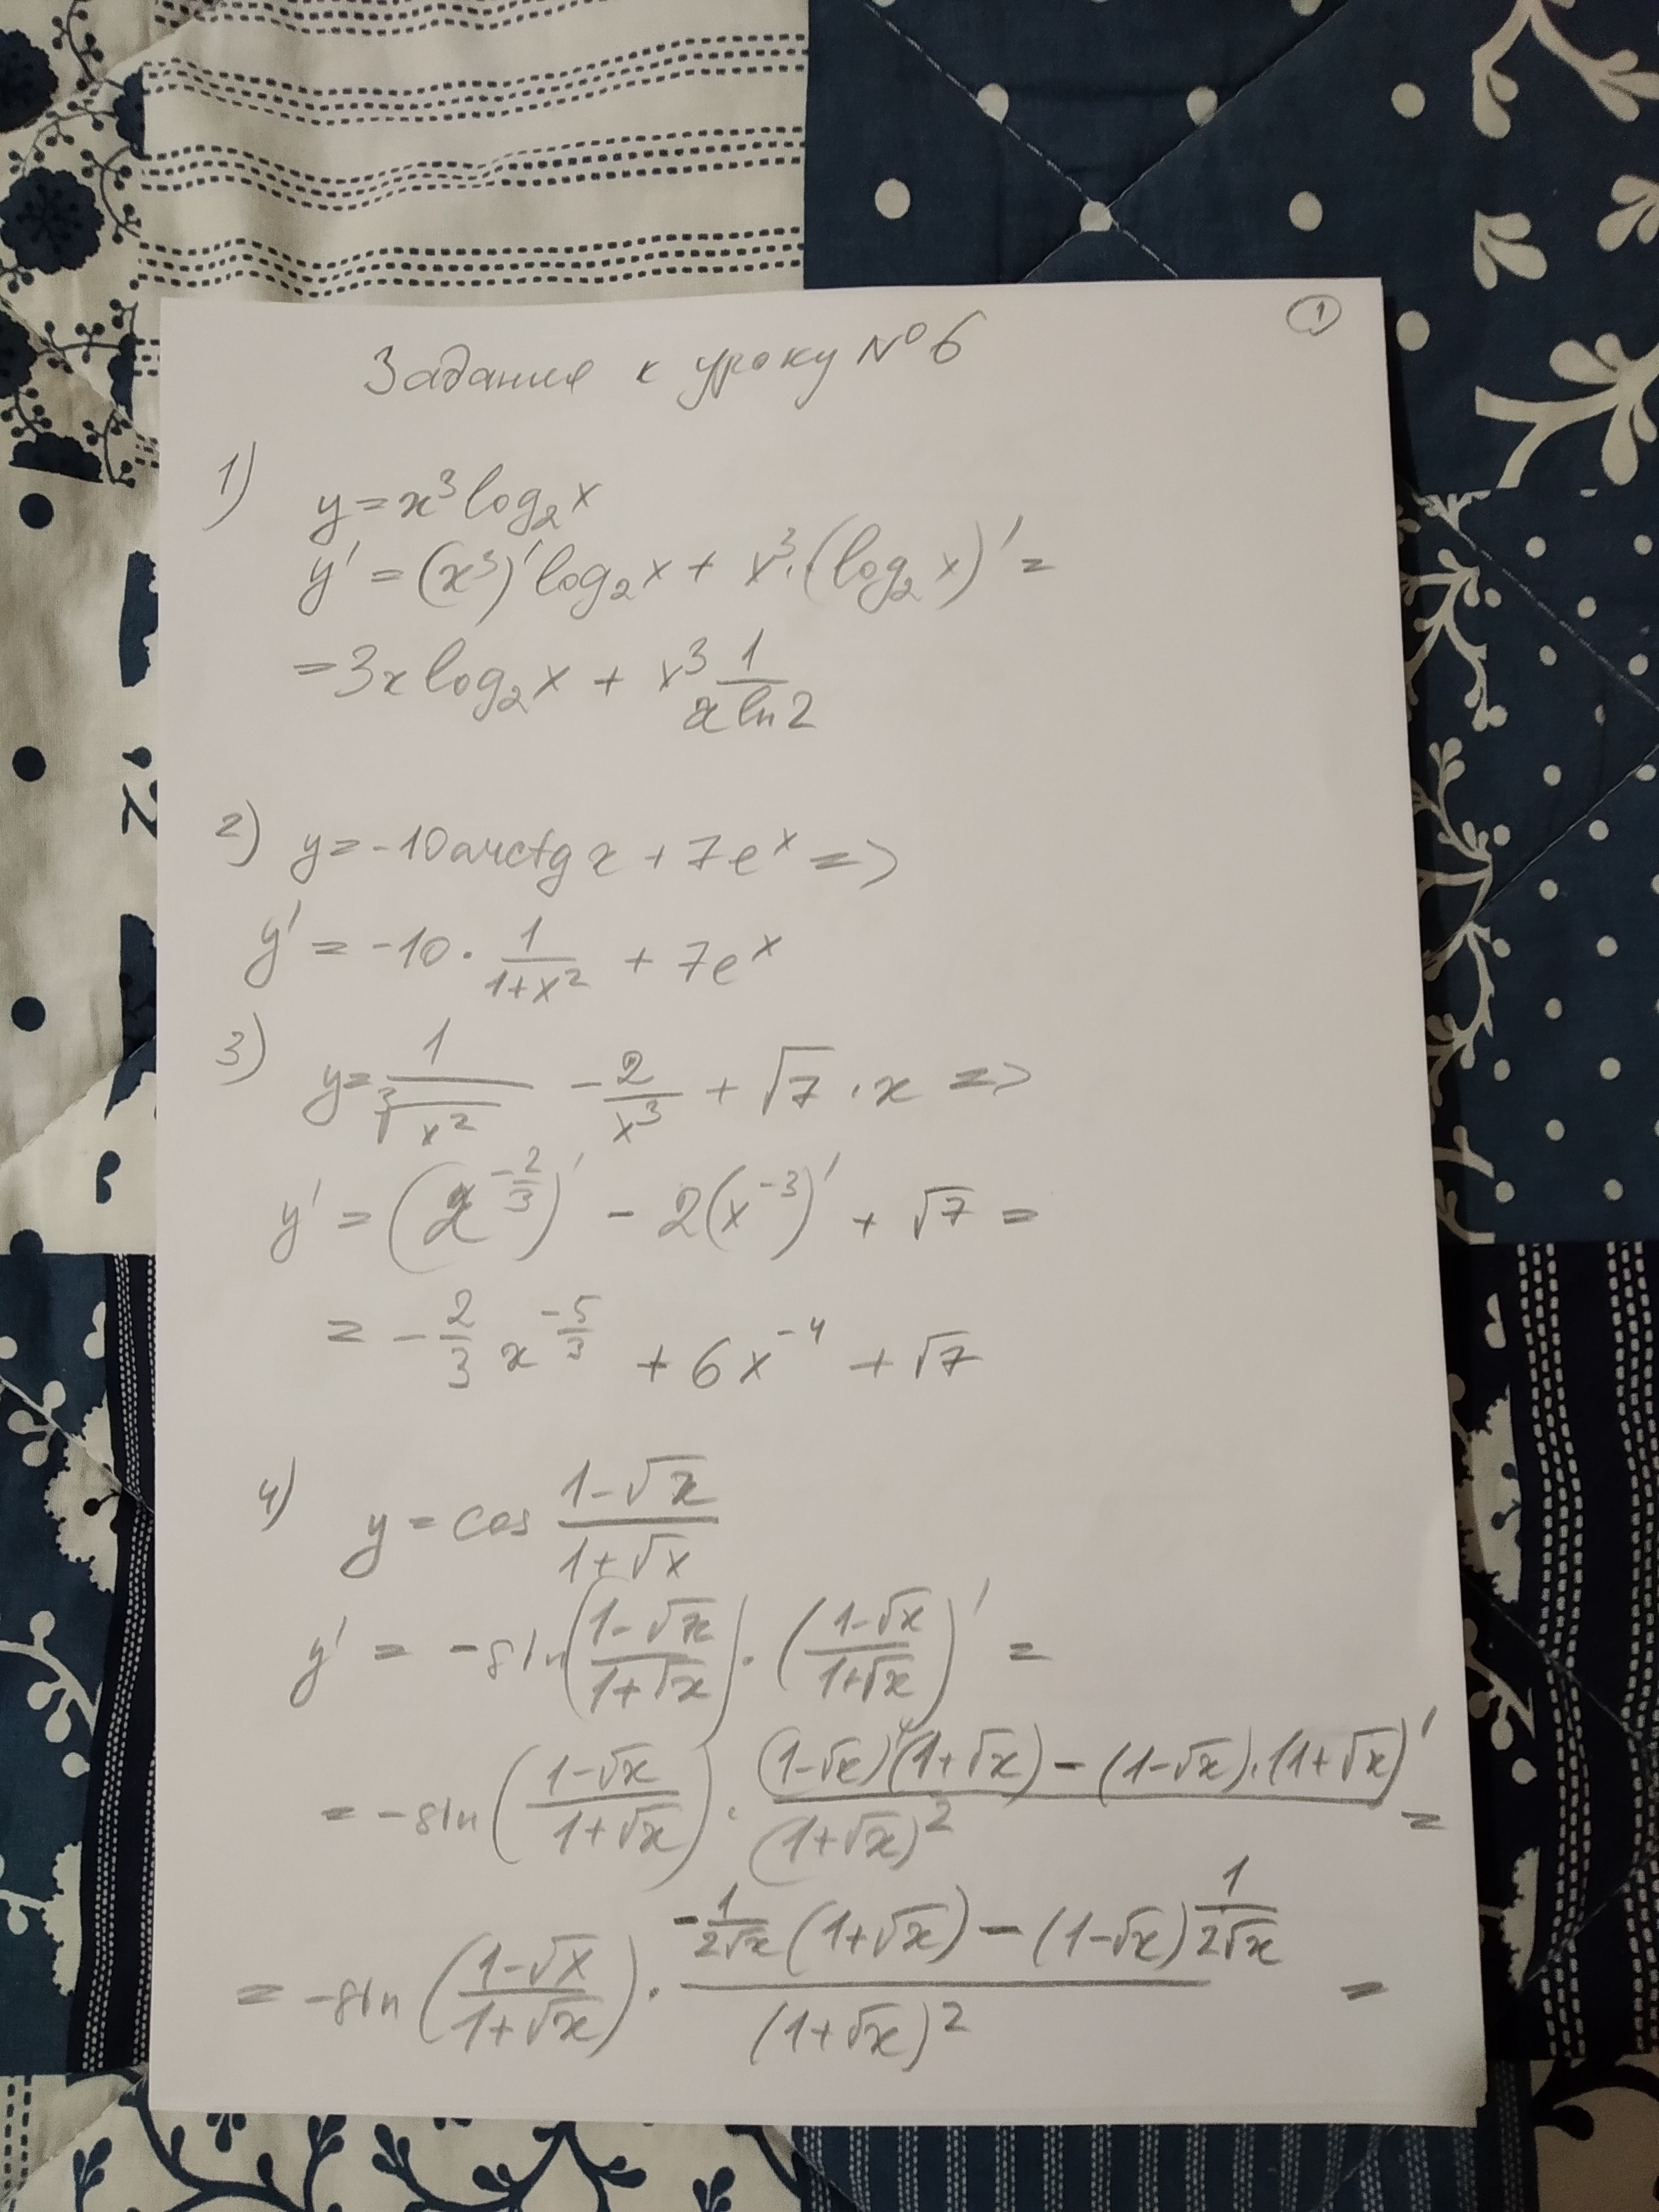 1
Задания к уроку №6
1) y = x³ log₂x
y' = (x³)' log₂x + x³·(log₂x)' =
= 3x log₂x + x³ 1/(x ln2)
2) y = -10 arctg x + 7eˣ =>
y' = -10 · 1/(1+x²) + 7eˣ
3) y = 1/∛(x²) - 2/x³ + √7 · x =>
y' = (x^(-2/3))' - 2(x⁻³)' + √7 =
= -2/3 x^(-5/3) + 6x⁻⁴ + √7
4) y = cos (1-√x)/(1+√x)
y' = -sin((1-√x)/(1+√x)) · ((1-√x)/(1+√x))' =
= -sin((1-√x)/(1+√x)) · ((1-√x)'(1+√x) - (1-√x)·(1+√x)')/(1+√x)² =
= -sin((1-√x)/(1+√x)) · (-1/(2√x) (1+√x) - (1-√x) 1/(2√x))/(1+√x)² =